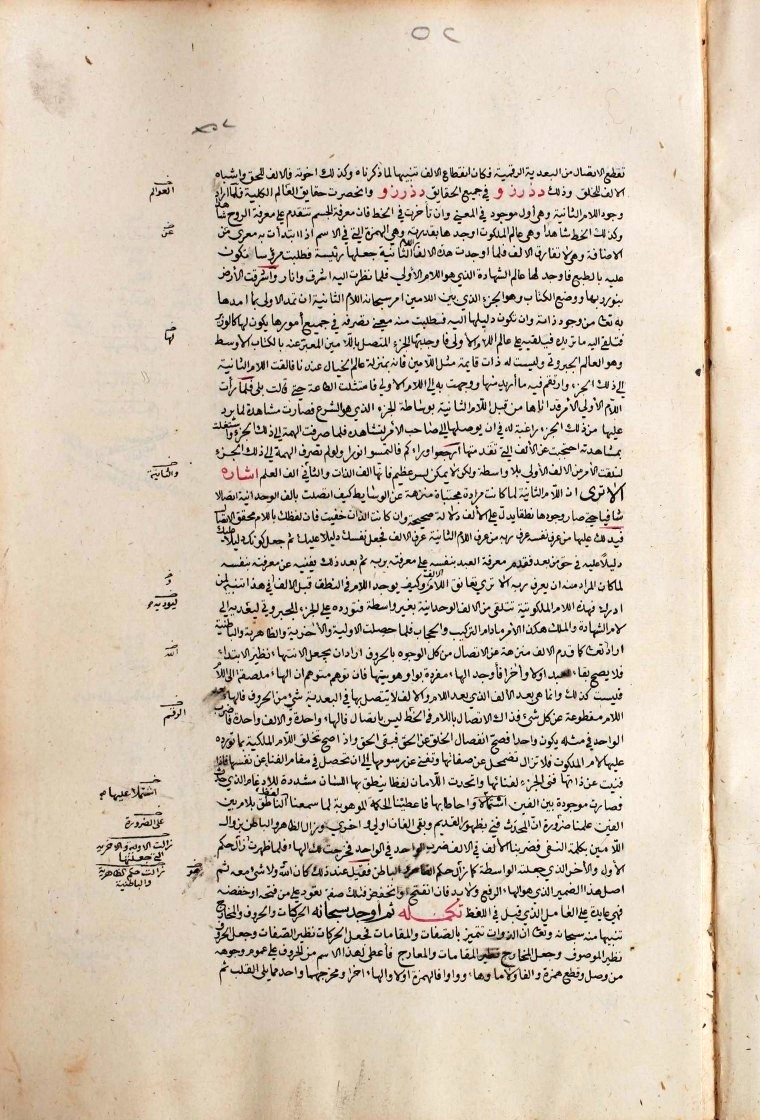 تقطع الاتصال من البعدية الرقمية فكان انقطاع الالف تنبيها لما ذكرناه وكذلك اخوته فالالف للحق واشباه
الالف للخلق وذلك د ذ ر ز و في جميع الحقايق د ذ ر ز و وانحصرت حقايق العالم الكلية فلما اراد
وجود اللام الثانية وهي أول موجود في المعنى وان تأخرت في الخط فان معرفة الجسم تتقدم على معرفة الروح
وكذلك الخط شاهدا وهي عالم الملكوت اوجدها بقدرته وهي الهمزة التي في الاسم اذا ابتدأت به معرى من
الاضافة وهي لا تفارق الالف فلما اوجدت هذه الالف اللام الثانية جعلها رئيسة فطلبت مرؤسا تكون
عليه بالطبع فاوجد لها عالم الشهادة الذي هو اللام الأولى فلما نظرت اليه اشرق وانار واشرقت الأرض
بنور ربها ووضع الكتاب وهو الجزء الذي بين اللامين امر سبحانه اللام الثانية ان تمد الاولى بما امدها
به تعالى من وجود ذاته وان تكون دليلها اليه فطلبت منه معنى تصرفه في جميع أمورها يكون لها كالوزير
فتلقي اليه ما تريده فيلقيه على عالم اللام الاولى فاوجد لها الجزء المتصل باللامين المعبر عنه بالكتاب الاوسط
وهو العالم الجبروتي وليست له ذات قائمة مثل اللامين فانه بمنزلة عالم الخيال عندنا فالقت اللام الثانية
الى ذلك الجزء وارتقم فيه ما أريد منها ووجهت به الى اللام الاولى فامتثلت الطاعة حتى قالت بلى فلما رأت
اللام الأولى الأمر قد اتاها من قبل اللام الثانية بوساطة الجزء الذي هو الشرع صارت مشاهدة لما يرد
عليها من ذلك الجزء راغبة له في ان يوصلها الى صاحب الأمر لتشاهده فلما صرفت الهمة الى ذلك الجزء واشتغلت
بمشاهدته احتجبت عن الألف التي تقدمتها ارجعوا وراءكم فالتمسوا نورا ولو لم تصرف الهمة الى ذلك الجزء
لتلقت الأمر من الالف الأولى بلا واسطة ولكن لا يمكن لسر عظيم فانها الف الذات والثاني الف العلم اشاره
الا ترى ان اللام الثانية لما كانت مرادة مجتباة منزهة عن الوسايط كيف اتصلت بالف الوحدانية اتصالا
شافيا حتى صار وجودها نطقا يدل على الألف دلالة صحيحة وان كانت الذات خفيت فان لفظك باللام محقق الاتصال
فيدلك عليها من عرف نفسه عرف ربه من عرف اللام الثانية عرف الالف فجعل نفسك دليلا عليك ثم جعل كونك دليلا عليك
دليلا عليه في حق من بعد فقدم معرفة العبد بنفسه على معرفته بربه ثم بعد ذلك يفنيه عن معرفته بنفسه
لما كان المراد منه ان يعرف ربه الا ترى تعانق اللام الالف وكيف يوجد اللام في النطق قبل الالف في هذا تنبيه لمن
ادرك فهذه اللام الملكوتية تتلقى من الالف الوحدانية بغير واسطة فتورده على الجزء الجبروتي ليؤديه الى
لام الشهادة والملك هكذا الامر مادام التركيب والحجاب فلما حصلت الاولية والآخرية والظاهرية والباطنية
اراد تعالى كما قدم الالف منزهة عن الاتصال من كل الوجوه بالحروف اراد ان يجعل الانتهاء نظير الابتداء
فلا يصح بقاء للعبد اولا وآخرا فأوجد الهاء مفردة بواو هويتها فان توهم متوهم ان الهاء ملصقة الى اللام
فليست كذلك وانما هي بعد الالف الذي بعد اللام والالف لا يتصل بها في البعدية شيء من الحروف فالهاء بعد
اللام مقطوعة عن كل شيء فذاك الاتصال باللام في الخط ليس باتصال فالهاء واحدة والالف واحدة فاضرب
الواحد في مثله يكون واحدا فصح انفصال الخلق عن الحق فبقي الحق واذا صح تخلق اللام الملكية بما تورده
عليها لام الملكوت فلا تزال تضمحل عن صفاتها وتفنى عن رسومها الى ان تحصل في مقام الفناء عن نفسها فاذا
فنيت عن ذاتها فنى الجزء لفنائها واتحدت اللامان لفظا ينطق بها اللسان مشددة للادغام الذي حدث
فصارت موجودة بين الفين اشتملا واحاطا بها فاعطتنا الحكمة الموهوبة لما سمعنا لفظ الناطق بلام بين
الفين علمنا ضرورة ان المحدث فنى بظهور القديم وبقى الفان اولى واخرى وزال الظاهر والباطن بزوال
اللامين بكلمة النفي فضربنا الالف في الالف ضرب الواحد في الواحد فخرجت لك الهاء فلما ظهرت زال حكم
الأول والآخر الذي جعلته الواسطة كما زال حكم الظاهر والباطن فقيل عند ذلك كان الله ولا شيء معه ثم
اصل هذا الضمير الذي هو الهاء الرفع ولابد فان انفتح او انخفض فتلك صفة تعود على من فتحه او خفضه
فهي عايدة على العامل الذي قبل في اللفظ تكملة ثم اوجد سبحانه الحركات والحروف والمخارج
تنبيها منه سبحانه وتعالى ان الذوات تتميز بالصفات والمقامات فجعل الحركات نظير الصفات وجعل الحروف
نظير الموصوف وجعل المخارج نظير المقامات والمعارج فأعطى لهذا الاسم من الحروف على عموم وجوهه
من وصل وقطع همزة والفا ولاما وهاء وواوا فالهمزة اولا والهاء اخرا ومخرجهما واحد مما يلي القلب ثم
العوالم
عن
لها
والثانية
و
ليؤديه
الله
الرقم
اشتملا عليها
على الضرورة
زالت الاولية والآخرية
التي جعلتها
زالت حكم الظاهرية
والباطنية